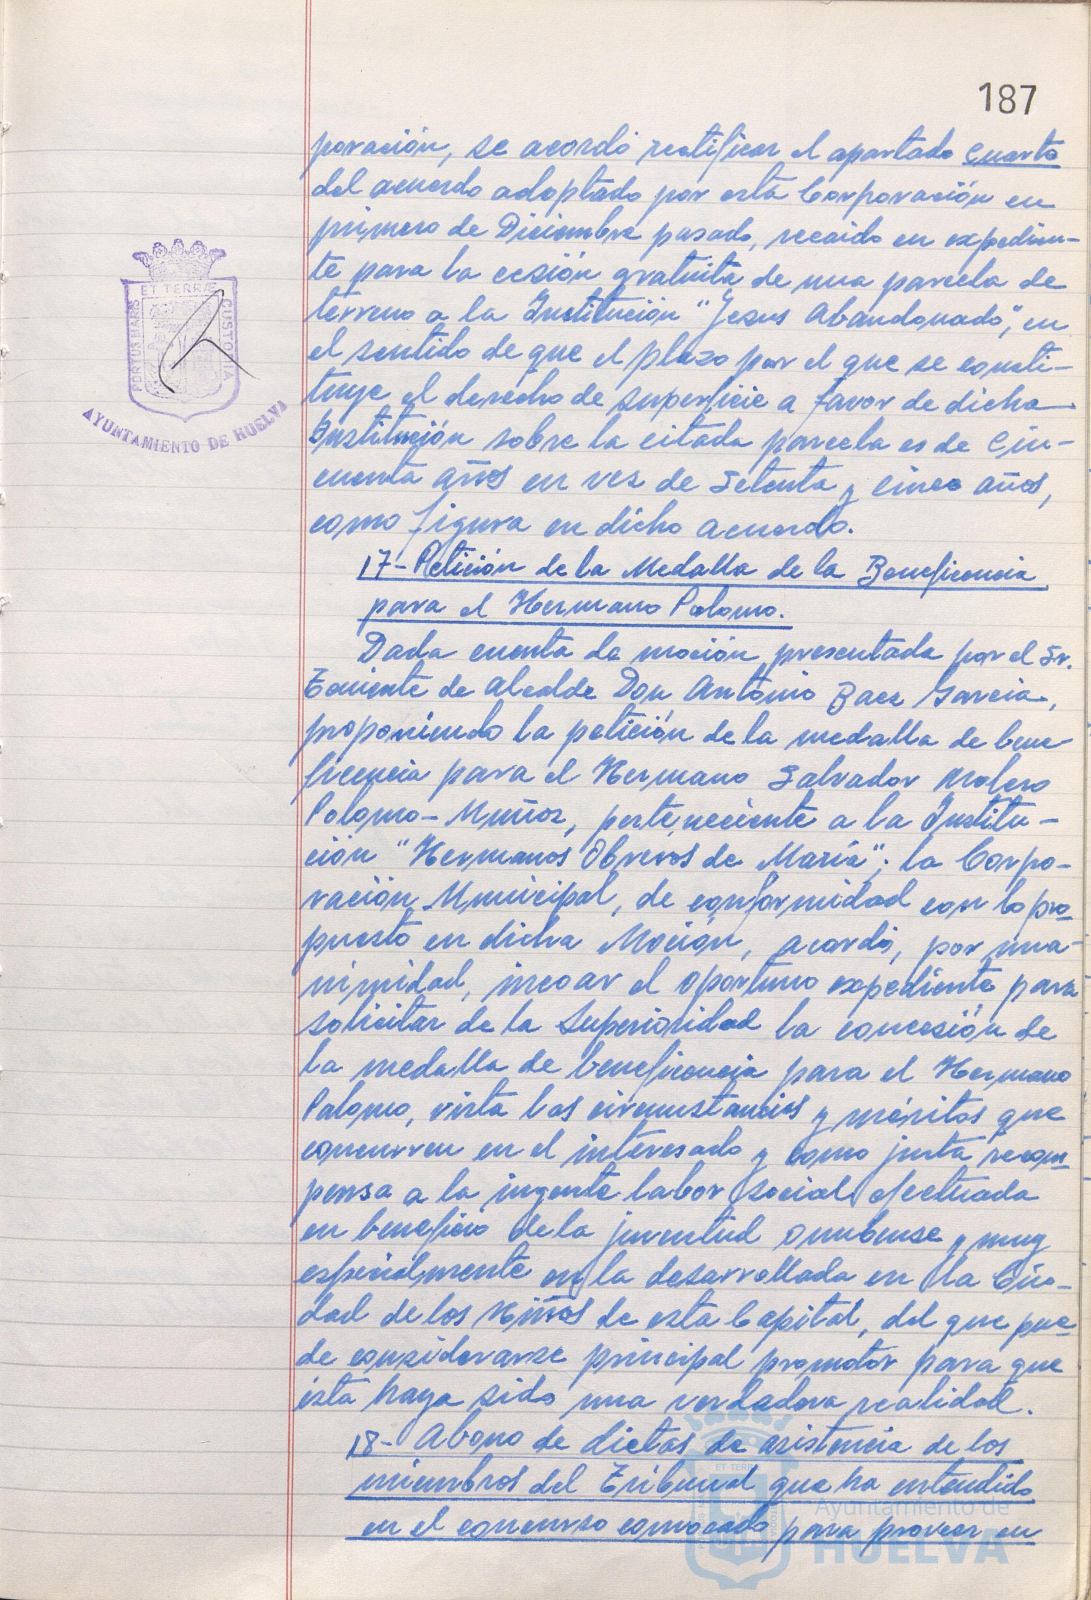 187
poración, se acordó rectificar el apartado Cuarto
del acuerdo adoptado por esta Corporación en
primero de Diciembre pasado, recaido en expedien-
te para la cesión gratuita de una parcela de
terreno a la Institución "Jesus Abandonado", en
el sentido de que el plazo por el que se consti-
tuye el derecho de superficie a favor de dicha
Institución sobre la citada parcela es de Cin-
cuenta años en vez de Setenta y cinco años,
como figura en dicho acuerdo.
17- Petición de la Medalla de la Beneficencia
para el Hermano Palomo.
Dada cuenta de moción presentada por el Sr.
Teniente de Alcalde Don Antonio Baez Garcia,
proponiendo la petición de la medalla de bene-
ficencia para el Hermano Salvador Molero
Palomo-Muñoz, perteneciente a la Institu-
ción "Hermanos Obreros de María"; la Corpo-
ración Municipal, de conformidad con lo pro-
puesto en dicha Moción, acordó, por una-
nimidad, incoar el oportuno expediente para
solicitar de la Superioridad la concesión de
la medalla de beneficencia para el Hermano
Palomo, vista las circunstancias y méritos que
concurren en el interesado y como justa recom-
pensa a la ingente labor social efectuada
en beneficio de la juventud onubense y muy
especialmente en la desarrollada en la Ciu-
dad de los Niños de esta Capital, del que pue-
de considerarse principal promotor para que
ésta haya sido una verdadera realidad.
18- Abono de dietas de asistencia de los
miembros del Tribunal que ha entendido
en el concurso convocado para proveer en
PORTUS MARIS
ET TERRÆ
CUSTODIA
AYUNTAMIENTO DE HUELVA
Ayuntamiento de
HUELVA